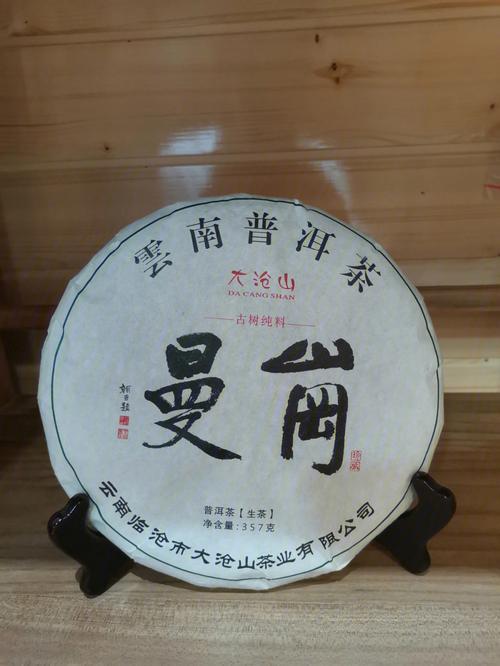 雲南普洱茶
大沧山
DA CANG SHAN
古树纯料
曼崗
普洱茶【生茶】
净含量:357克
云南临沧市大沧山茶业有限公司